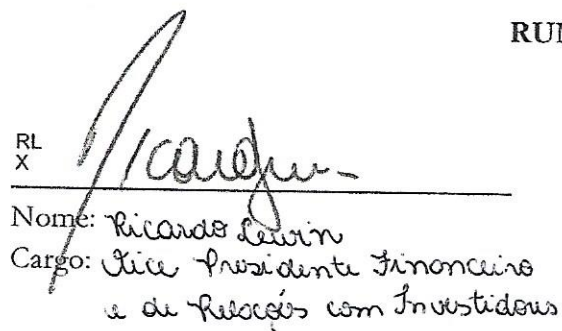 RUM
RL
X
Nome: Ricardo Lewin
Cargo: Vice Presidente Financeiro
e de Relações com Investidores